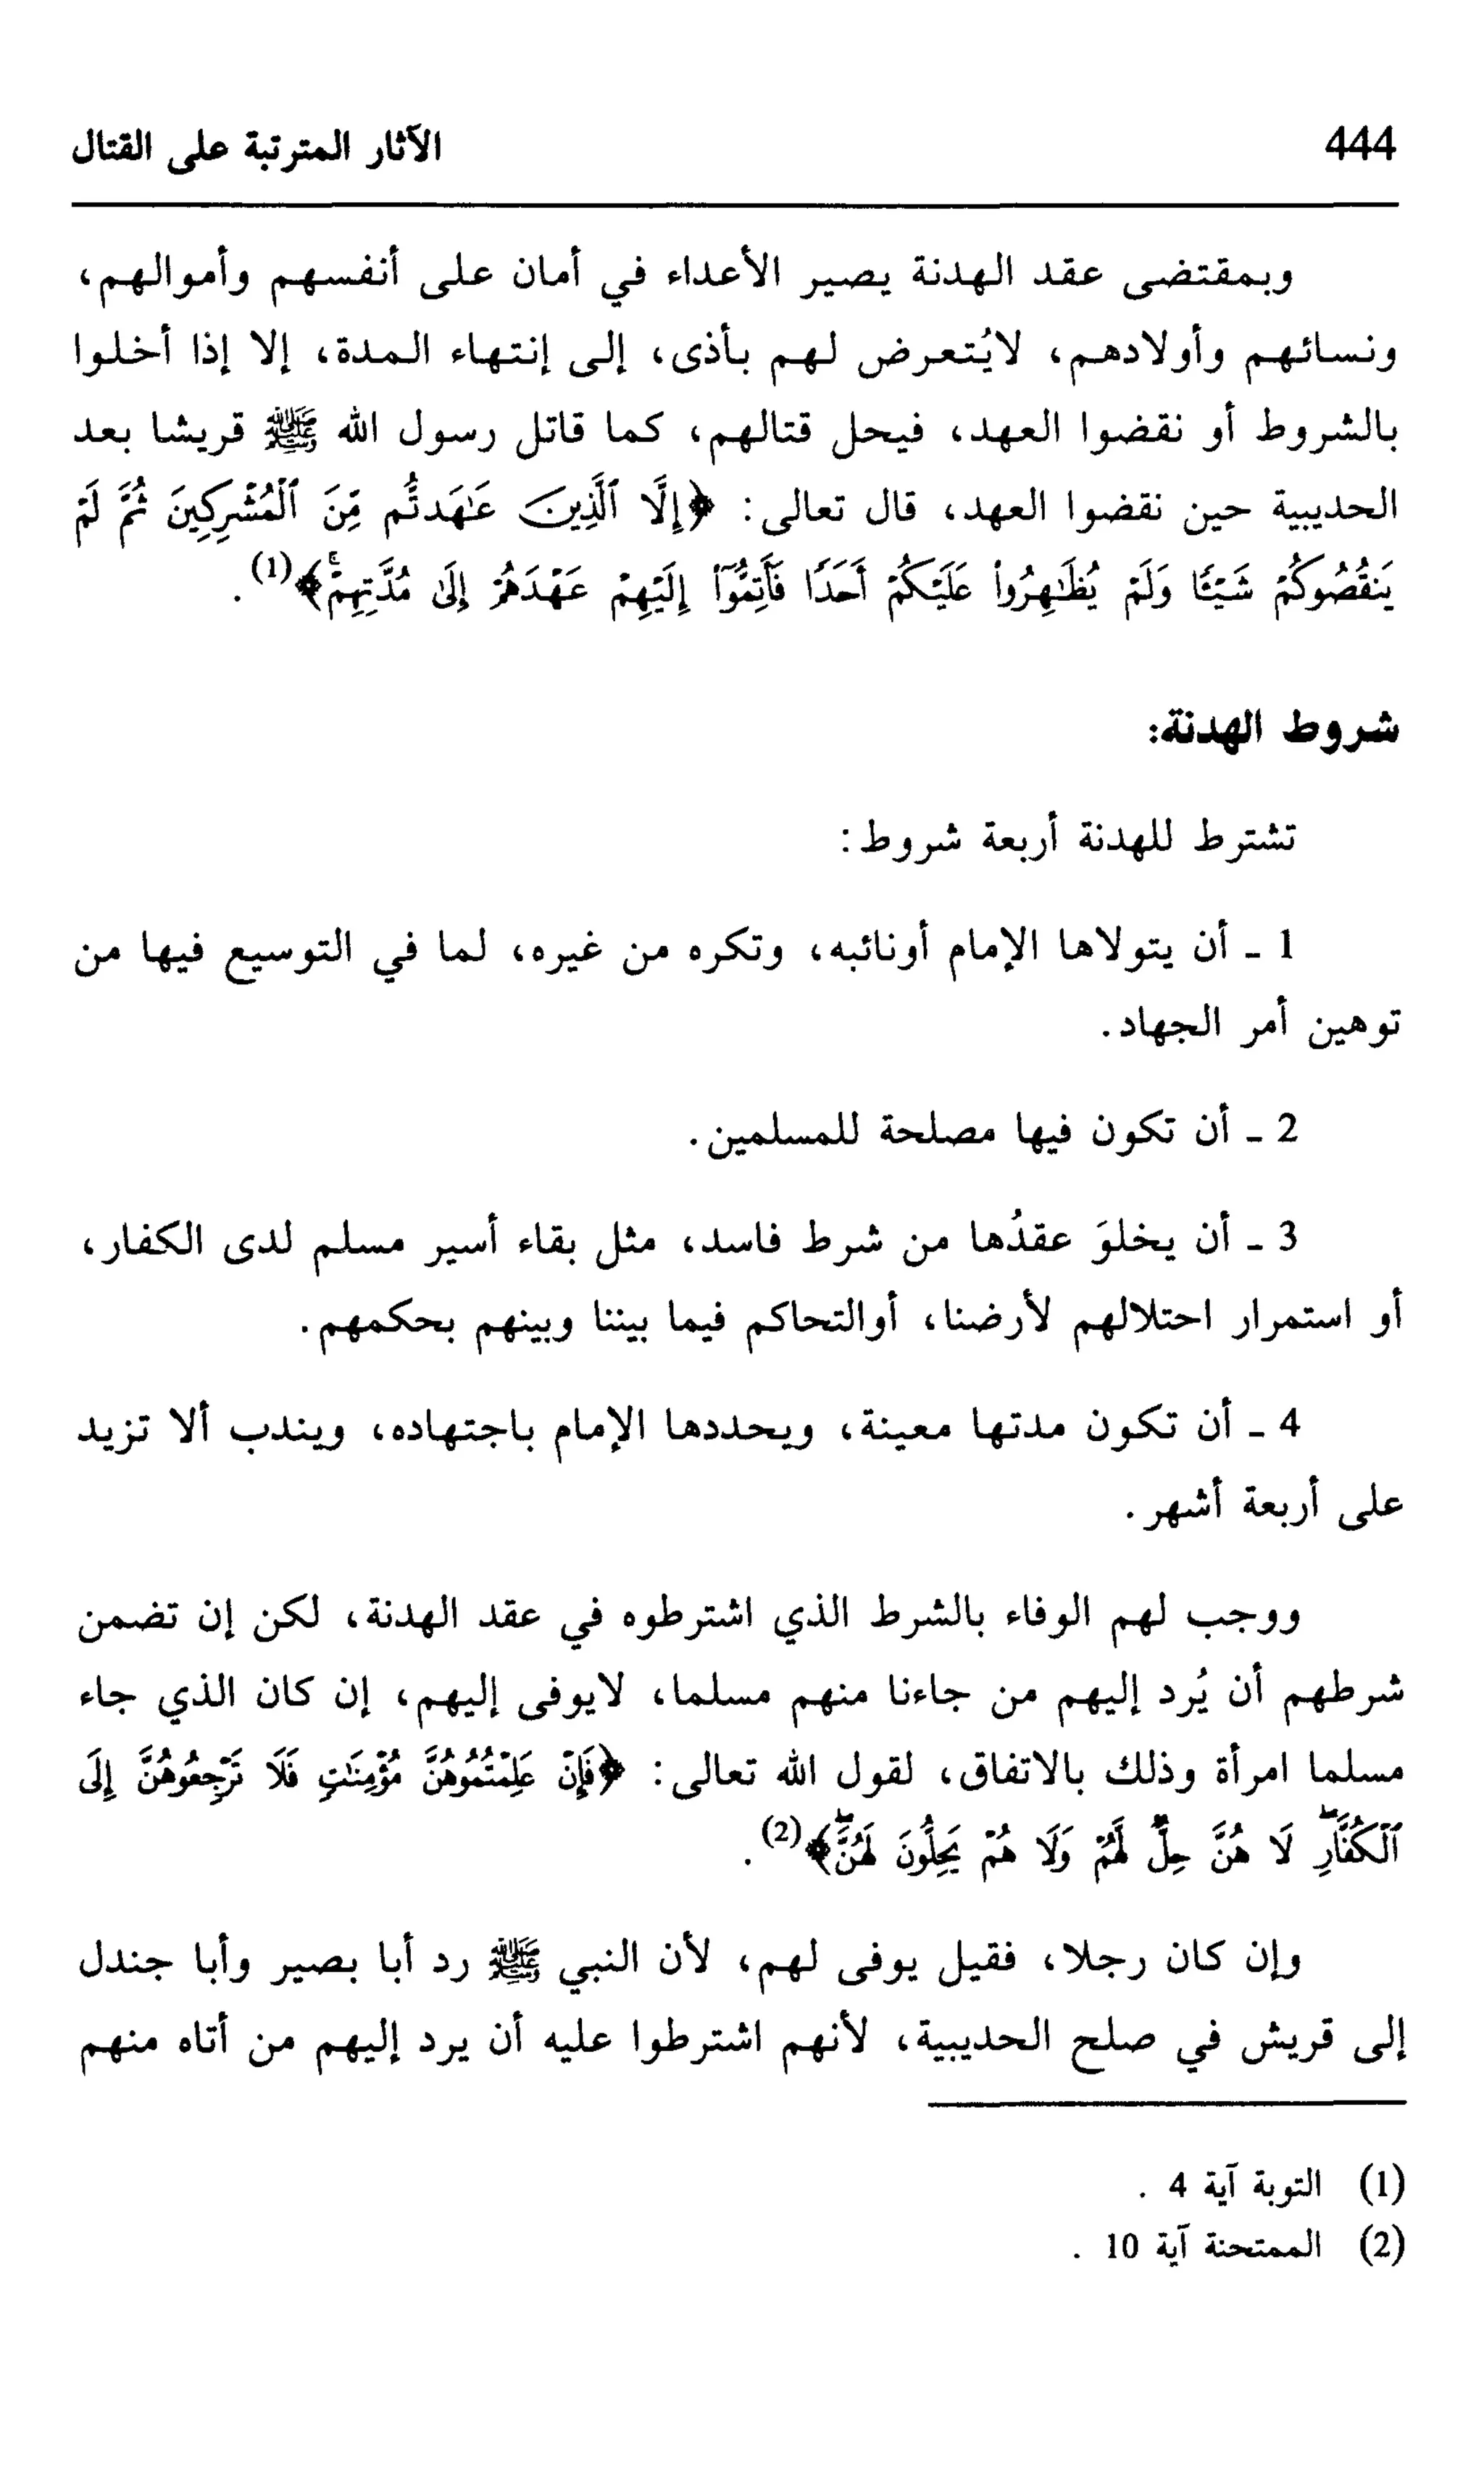 444
الآثار المترتبة على القتال
وبمقتضى عقد الهدنة يصير الأعداء في أمان على أنفسهم وأموالهم،
ونسائهم وأولادهم، لايُتعرض لهم بأذى، إلى إنتهاء المدة، إلا إذا أخلوا
بالشروط أو نقضوا العهد، فيحل قتالهم، كما قاتل رسول الله ﷺ قريشا بعد
الحديبية حين نقضوا العهد، قال تعالى: ﴿إِلَّا ٱلَّذِينَ عَٰهَدتُّم مِّنَ ٱلْمُشْرِكِينَ ثُمَّ لَمْ
يَنقُصُوكُمْ شَيْـًٔا وَلَمْ يُظَٰهِرُوا۟ عَلَيْكُمْ أَحَدًا فَأَتِمُّوٓا۟ إِلَيْهِمْ عَهْدَهُمْ إِلَىٰ مُدَّتِهِمْۚ﴾(1).
شروط الهدنة:
تشترط للهدنة أربعة شروط:
1 - أن يتولاها الإمام أونائبه، وتكره من غيره، لما في التوسيع فيها من
توهين أمر الجهاد.
2 - أن تكون فيها مصلحة للمسلمين.
3 - أن يخلوَ عقدُها من شرط فاسد، مثل بقاء أسير مسلم لدى الكفار،
أو استمرار احتلالهم لأرضنا، أوالتحاكم فيما بيننا وبينهم بحكمهم.
4 - أن تكون مدتها معينة، ويحددها الإمام باجتهاده، ويندب ألا تزيد
على أربعة أشهر.
ووجب لهم الوفاء بالشرط الذي اشترطوه في عقد الهدنة، لكن إن تضمن
شرطهم أن يُرد إليهم من جاءنا منهم مسلما، لايوفى إليهم، إن كان الذي جاء
مسلما امرأة وذلك بالاتفاق، لقول الله تعالى: ﴿فَإِنْ عَلِمْتُمُوهُنَّ مُؤْمِنَٰتٍ فَلَا تَرْجِعُوهُنَّ إِلَى
ٱلْكُفَّارِۖ لَا هُنَّ حِلٌّ لَّهُمْ وَلَا هُمْ يَحِلُّونَ لَهُنَّۖ﴾(2).
وإن كان رجلا، فقيل يوفى لهم، لأن النبي ﷺ رد أبا بصير وأبا جندل
إلى قريش في صلح الحديبية، لأنهم اشترطوا عليه أن يرد إليهم من أتاه منهم
(1) التوبة آية 4 .
(2) الممتحنة آية 10 .